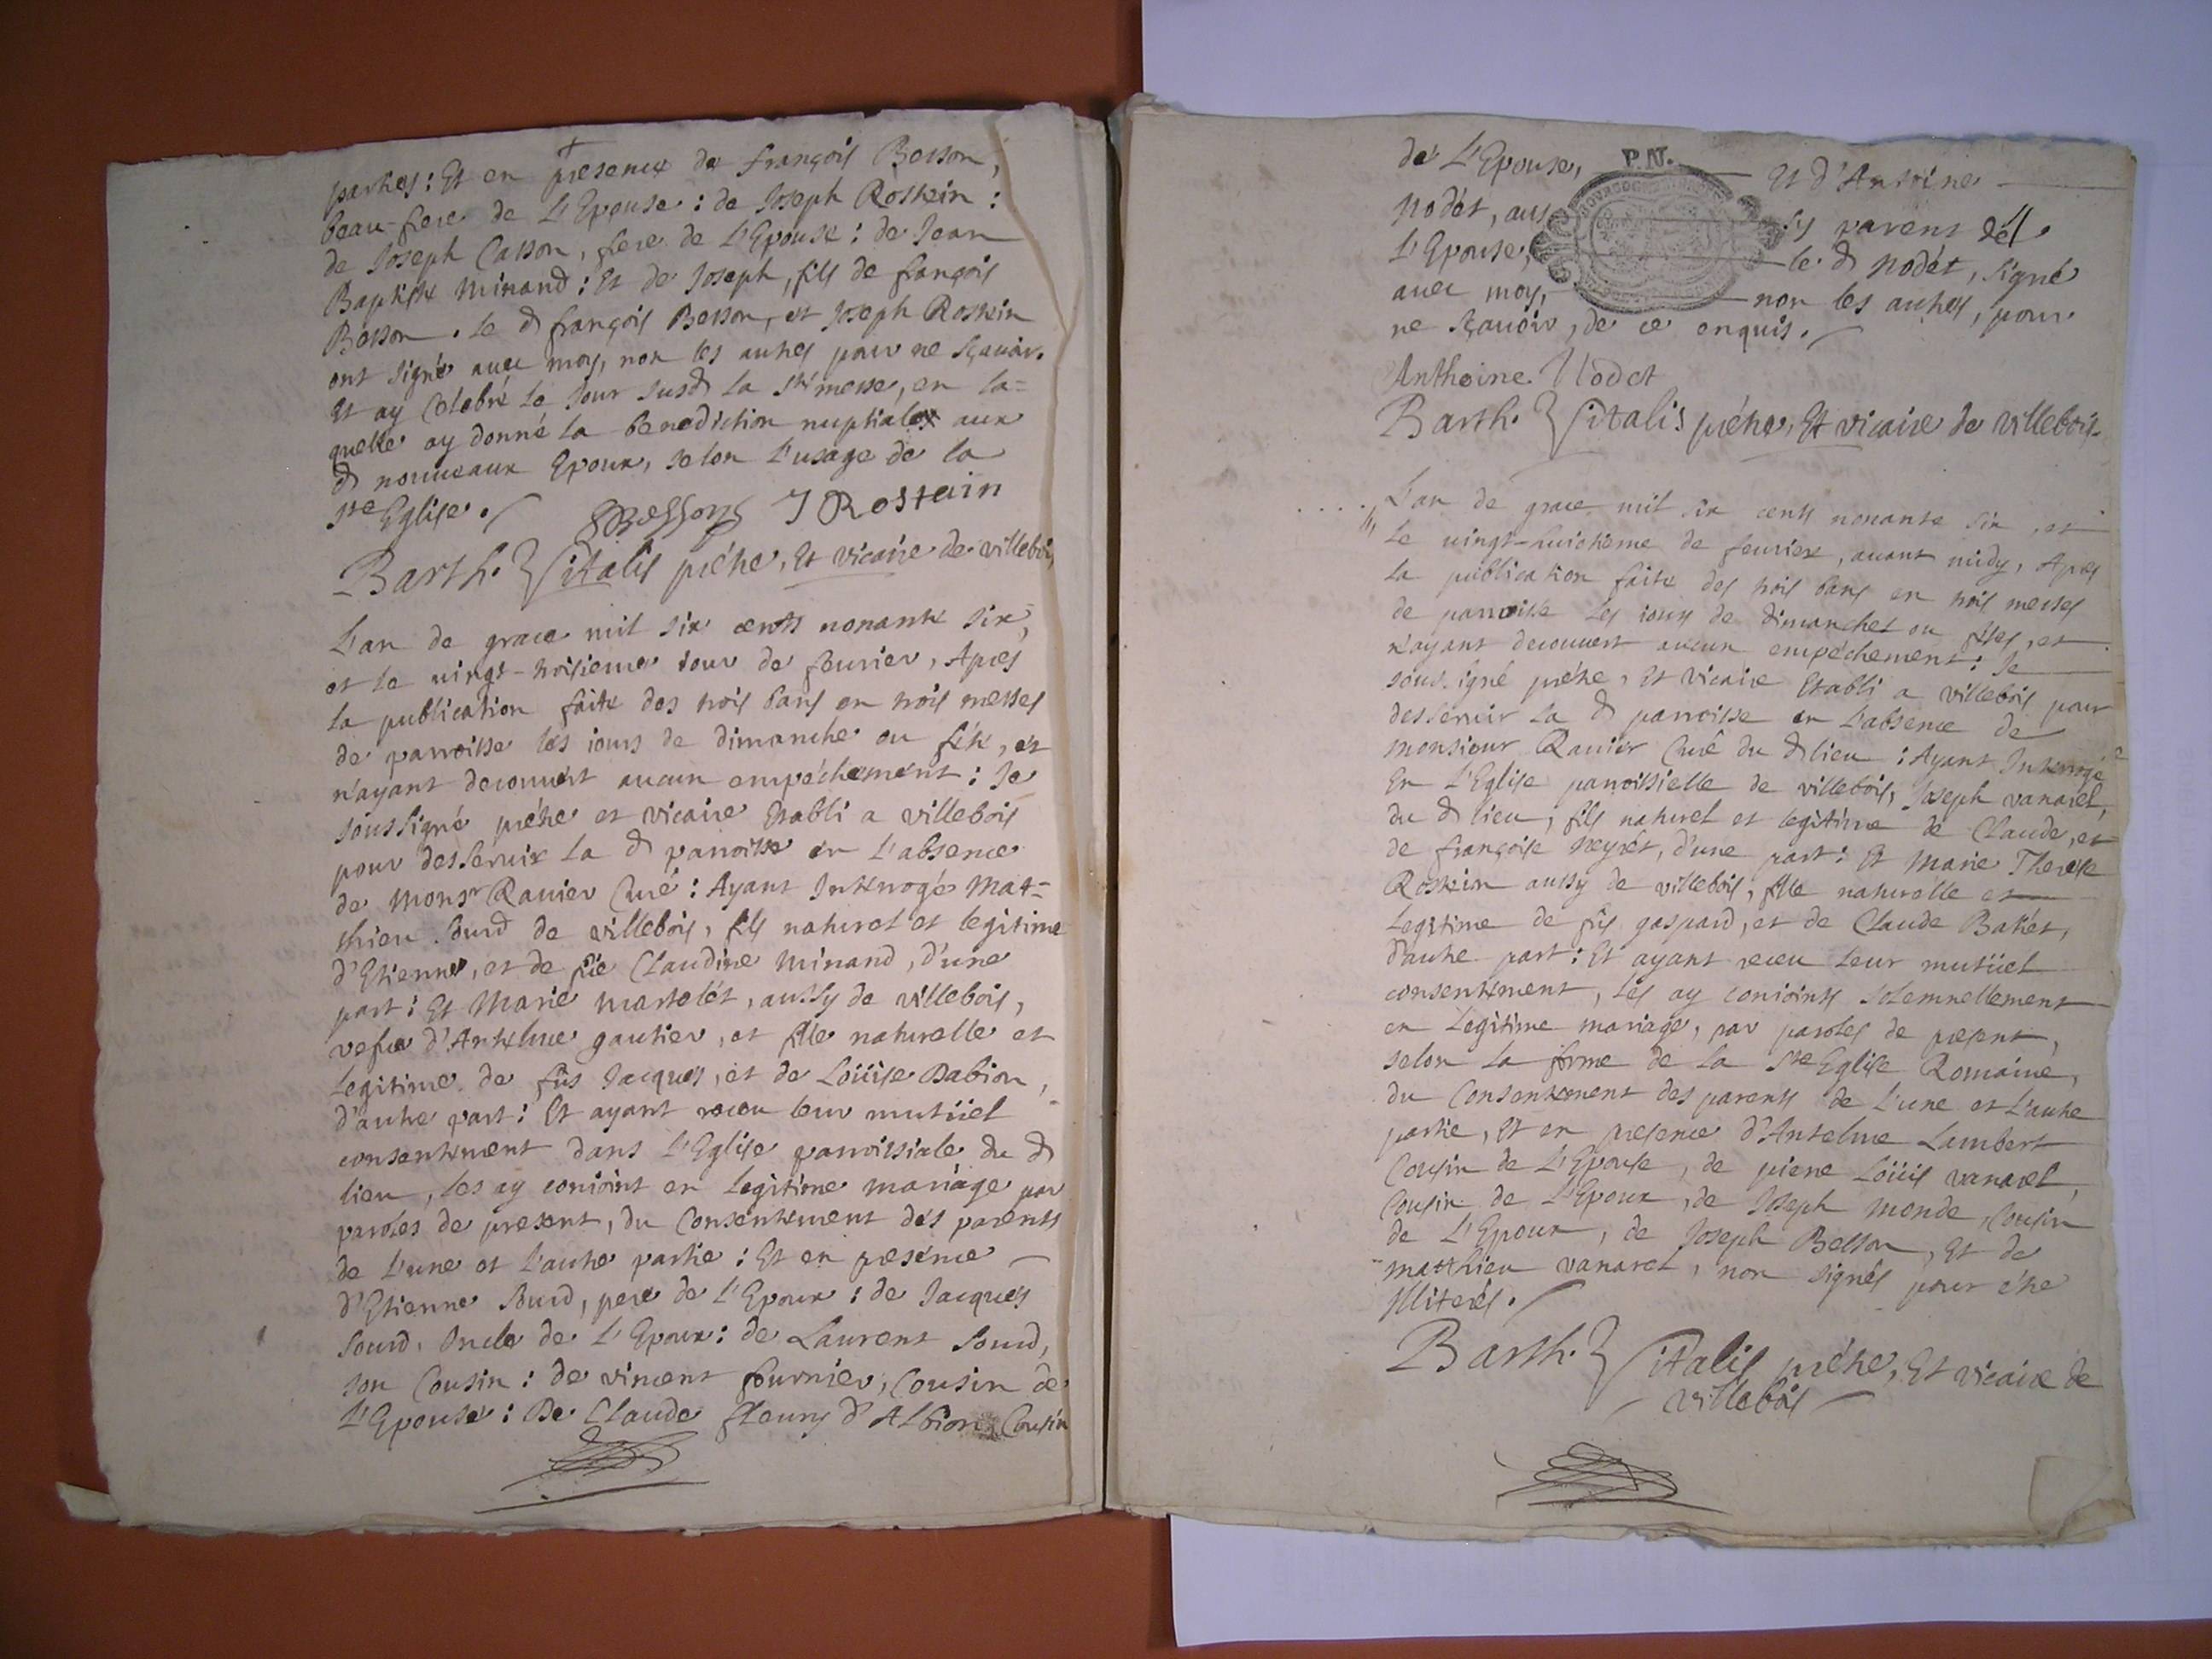 parties : Et en presence de françois Besson,
beau-frere de L'Epouse : de Joseph Rostein :
de Joseph Casson, frere de L'Epouse : de Jean
Baptiste Minand : Et de Joseph, fils de françois
Besson. le d françois Besson, et Joseph Rostein
ont signé avec moy, non les autres pour ne sçavoir.
Et ay Celebré le Jour susd la Ste messe, en la=
quelle ay donné la benediction nuptiale aux
d nouueaux Epoux, selon L'usage de la
Ste Eglise.
FBesson J Rostain
Barth. Vitalis prétre, Et vicaire de villebois
L'an de grace mil six cents nonante six,
et le uingt-troisieme iour de feurier, Apres
la publication faite des trois bans en trois messes
de parroisse les iours de dimanche ou féte, et
n'ayant decouuert aucun empéchement : Je
soussigné prétre et vicaire Etabli a villebois
pour desseruir la d parroisse en L'absence
de Monsr Ravier Curé : Ayant Interrogé Mat=
thieu Sourd de villebois, fils naturel et legitime
d'Etienne, et de fûe Claudine Minand, d'une
part : Et Marie Martolét, aussy de villebois,
vefue d'Antelme gautier, et fille naturelle et
legitime de fûs Jacques, et de Loüise Babion,
d'autre part : Et ayant receu leur mutüel
consentement dans L'Eglise parroissiale du d
lieu, les ay conioint en legitime mariage par
paroles de present, du Consentement des parents
de L'une et L'autre partie : Et en presence
d'Etienne Sourd, pere de L'Epoux : de Jacques
Sourd, Oncle de L'Epoux : de Laurent Sourd,
son Cousin : de vincent fournier, Cousin de
L'Epouse : De Claude fleury d'Albion, Cousin
de L'Epouse, P.N. Et d'Antoine
Nodét, aus parens de
L'Epouse, le d Nodét, signé
avec moy, non les autres, pour
ne sçauoir, de ce enquis.
Anthoine Nodet
Barth. Vitalis prétre, Et vicaire de villebois.
L'an de grace mil six cents nonante six, et
le uingt-huictieme de feurier, auant midy, Apres
la publication faite des trois bans en trois messes
de parroisse les iours de dimanches ou fétes, et
n'ayant decouuert aucun empéchement : Je
sous signé prétre, Et vicaire Etabli a villebois pour
desseruir la d parroisse en L'absence de
monsieur Ravier Curé du d lieu : Ayant Interrogé
En L'Eglise parroissielle de villebois, Joseph vanarel,
du d lieu, fils naturel et legitime de Claude, et
de françoise Neyrét, d'une part : Et Marie Therese
Rostein aussy de villebois, fille naturelle et
legitime de fûs gaspard, et de Claude Bakét,
d'autre part : Et ayant receu leur mutüel
consentement, les ay conioints solemnellement
en legitime mariage, par paroles de present,
selon la forme de la Ste Eglise Romaine,
du Consentement des parents de L'une et L'autre
partie, Et en presence d'Antelme Lambert
Cousin de L'Epouse, de pierre Loüis vanarel,
Cousin de L'Epoux, de Joseph Monde, Cousin
de L'Epoux, de Joseph Besson, Et de
matthieu vanarel, non signés pour étre
Illiterés.
Barth. Vitalis prétre, Et vicaire de
villebois